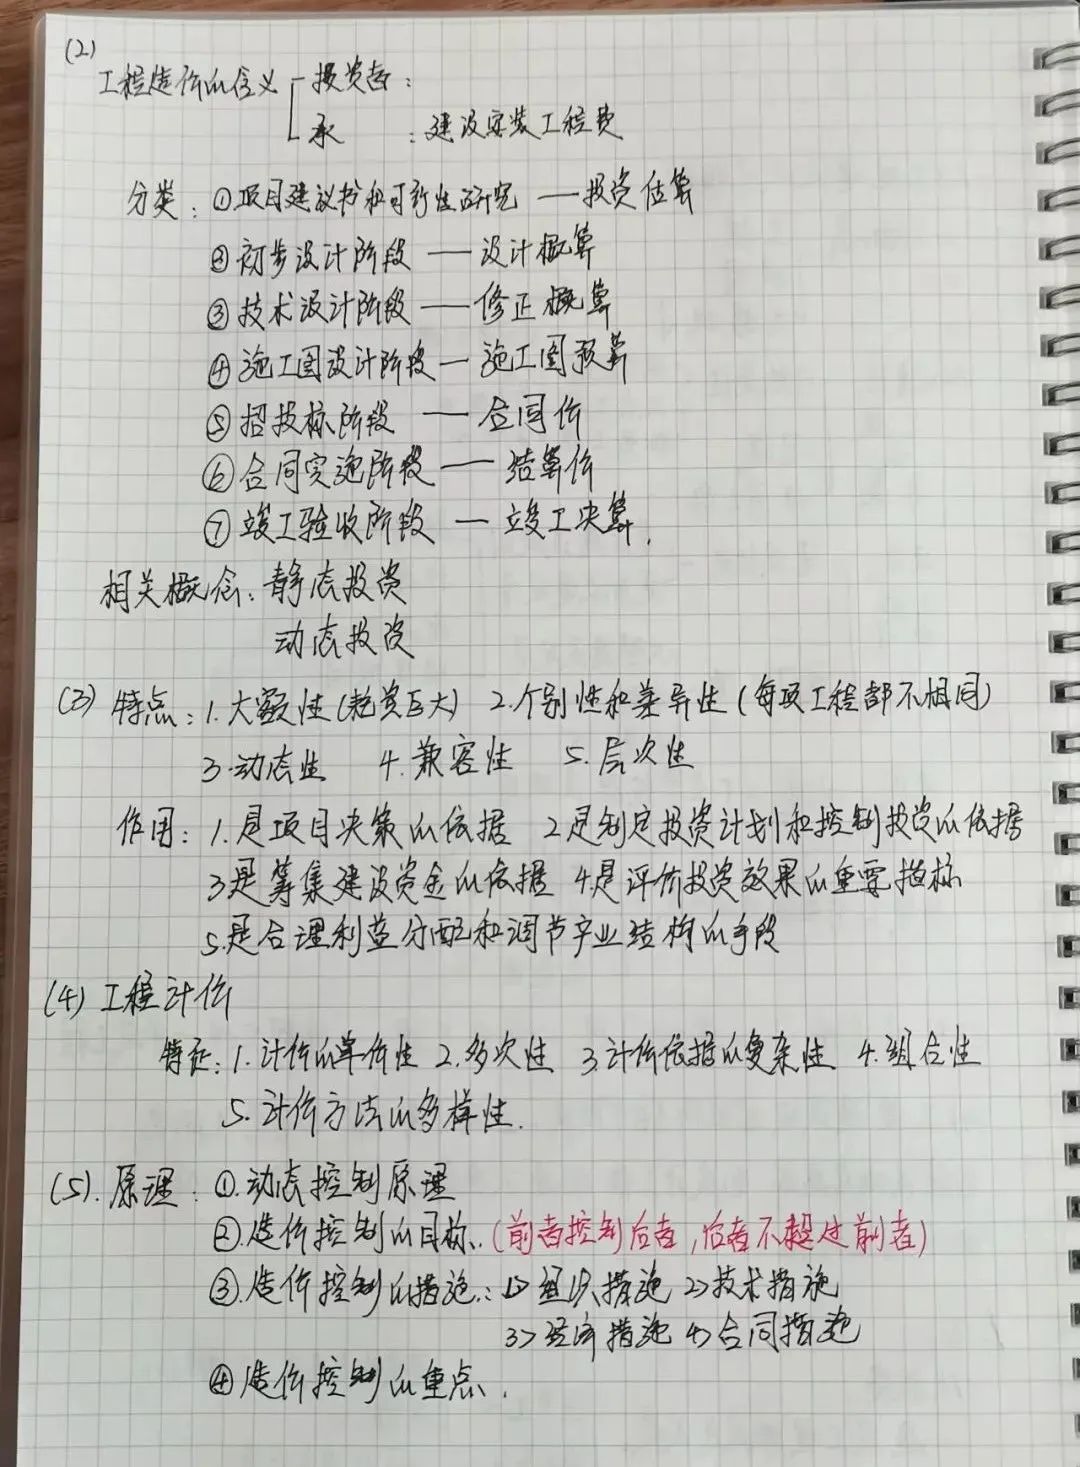 (2)
工程造价的含义 投资者：
承 ：建设安装工程费
分类：①项目建议书和可行性研究 — 投资估算
②初步设计阶段 — 设计概算
③技术设计阶段 — 修正概算
④施工图设计阶段 — 施工图预算
⑤招投标阶段 — 合同价
⑥合同实施阶段 — 结算价
⑦竣工验收阶段 — 竣工决算.
相关概念：静态投资
动态投资
(3) 特点：1.大额性(耗资巨大) 2.个别性和差异性(每项工程都不相同)
3.动态性 4.兼容性 5.层次性
作用：1.是项目决策的依据 2.是制定投资计划和控制投资的依据
3.是筹集建设资金的依据 4.是评价投资效果的重要指标
5.是合理利益分配和调节产业结构的手段
(4) 工程计价
特征：1.计价的单件性 2.多次性 3.计价依据的复杂性 4.组合性
5.计价方法的多样性.
(5).原理：①.动态控制原理
②.造价控制的目标.(前者控制后者,后者不超过前者)
③.造价控制的措施.：1>组织措施 2>技术措施
3>经济措施 4>合同措施
④造价控制的重点.